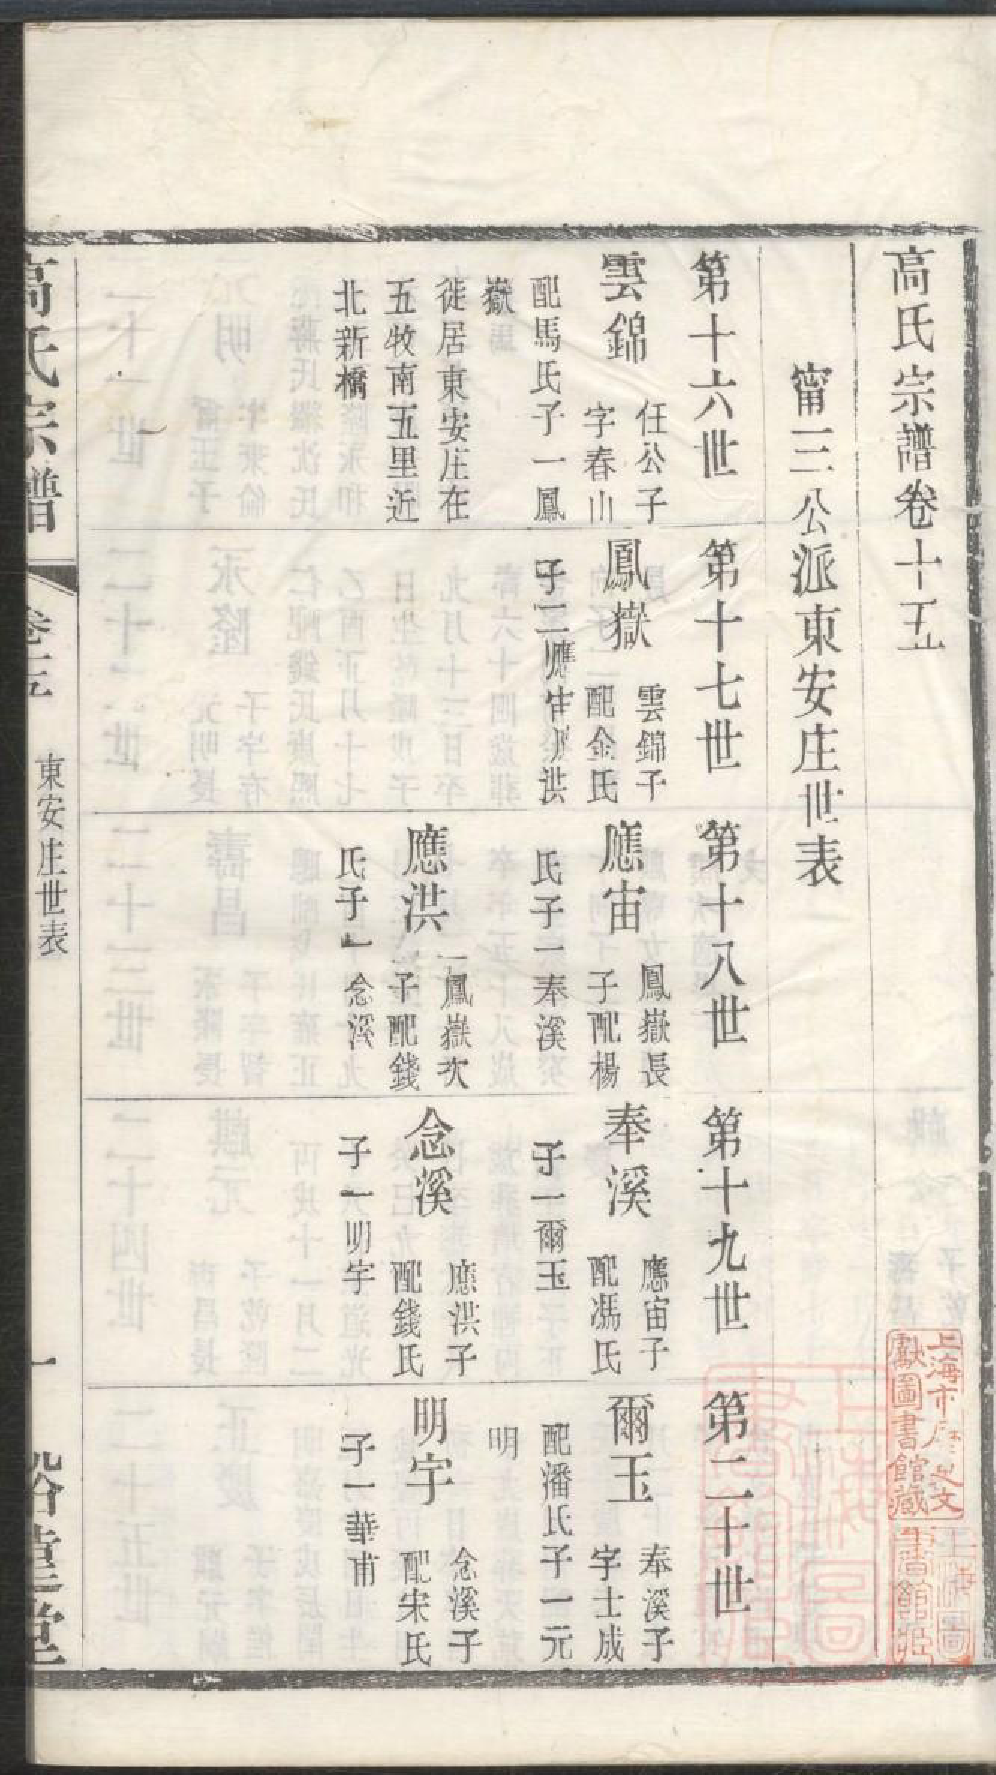 高氏宗譜卷十五
甯三公派東安庄世表
第十六世
雲錦
任公子
字春山
配馬氏子一鳳
嶽
徙居東安庄在
五牧南五里近
北新橋
第十七世
鳳嶽
雲錦子
配金氏
子二應宙應洪
第十八世
應宙
鳳嶽長
子配楊
氏子一奉溪
應洪
鳳嶽次
子配錢
氏子一念溪
第十九世
奉溪
應宙子
配馮氏
子一爾玉
念溪
應洪子
配錢氏
子一明宇
第二十世
爾玉
奉溪子
字士成
配潘氏子一元
明
明宇
念溪子
配宋氏
子一華甫
高氏宗譜
卷十五
東安庄世表
一
上海市歷史文
獻圖書館藏